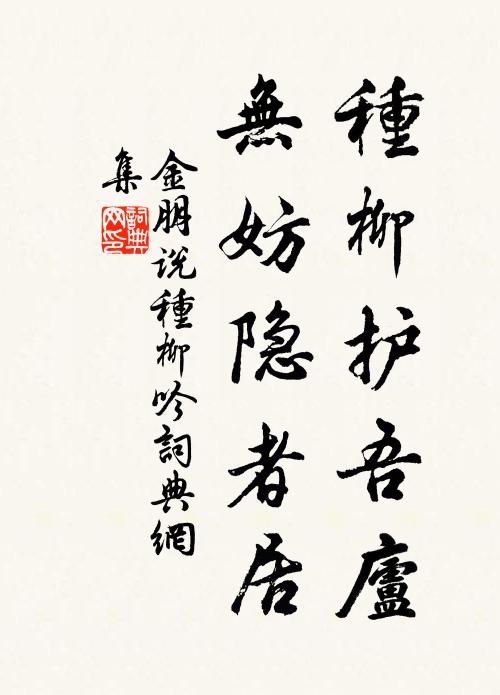 種柳护吾廬
無妨隐者居
金朋说種柳吟詞典網
集
詞典
网印